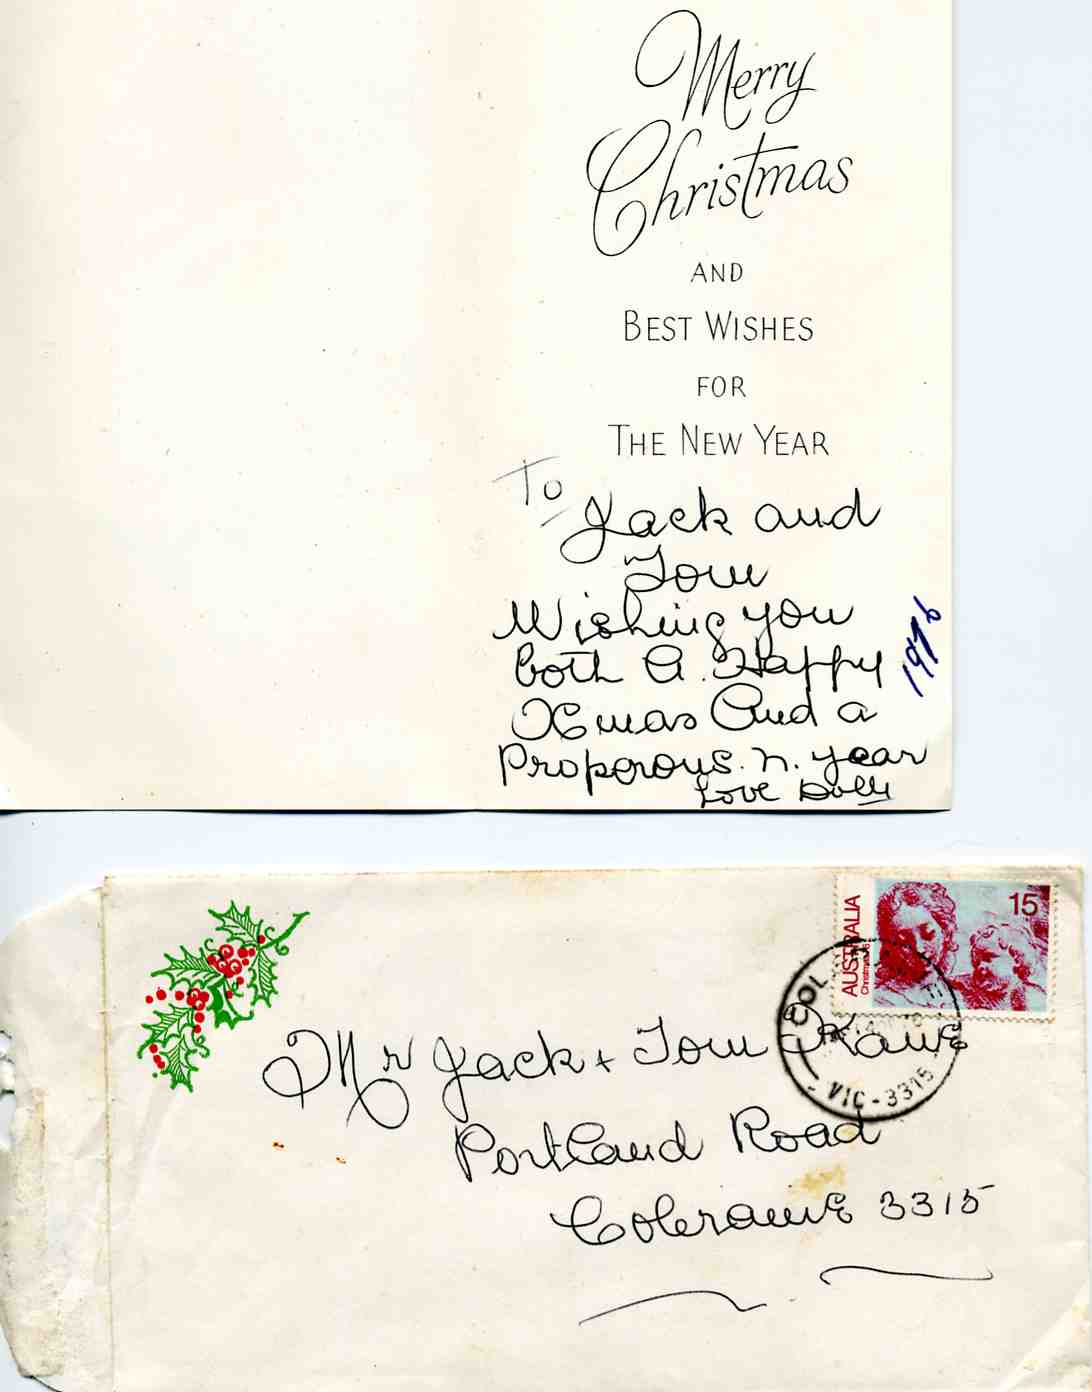 Merry
Christmas
AND
BEST WISHES
FOR
THE NEW YEAR
To
Jack and
Tom
Wishing you
both A. Happy
Xmas And a
Properous. N. year
Love Dolly
1976
AUSTRALIA
15
VIC-3315
Mr Jack + Tom
Portland Road
Coleraine 3315